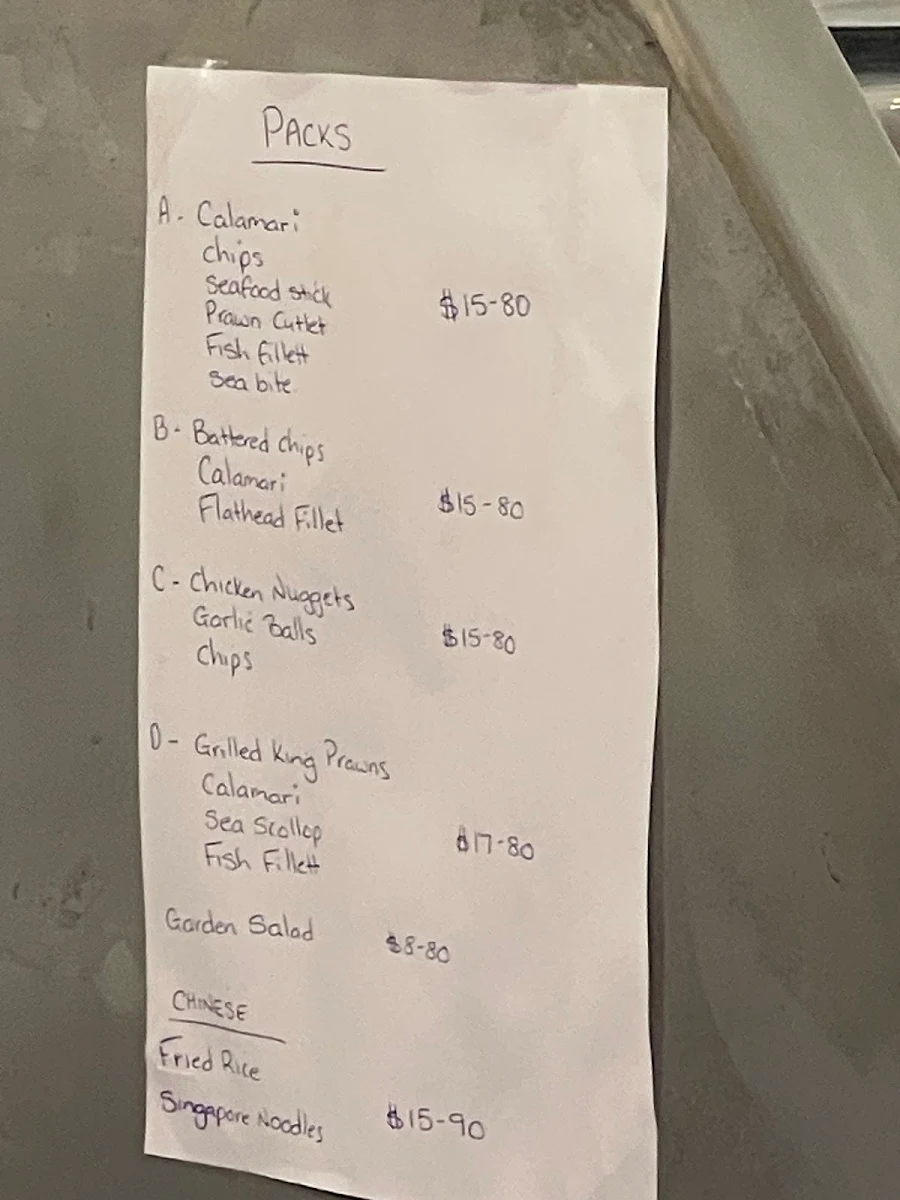 PACKS
A - Calamari
chips
Seafood stick
$15-80
Prawn Cutlet
Fish fillett
Sea bite
B - Battered chips
Calamari
$15-80
Flathead Fillet
C - Chicken Nuggets
Garlic Balls
$15-80
Chips
D - Grilled King Prawns
Calamari
Sea Scollop
$17-80
Fish Fillett
Garden Salad $8-80
CHINESE
Fried Rice
Singapore Noodles $15-90